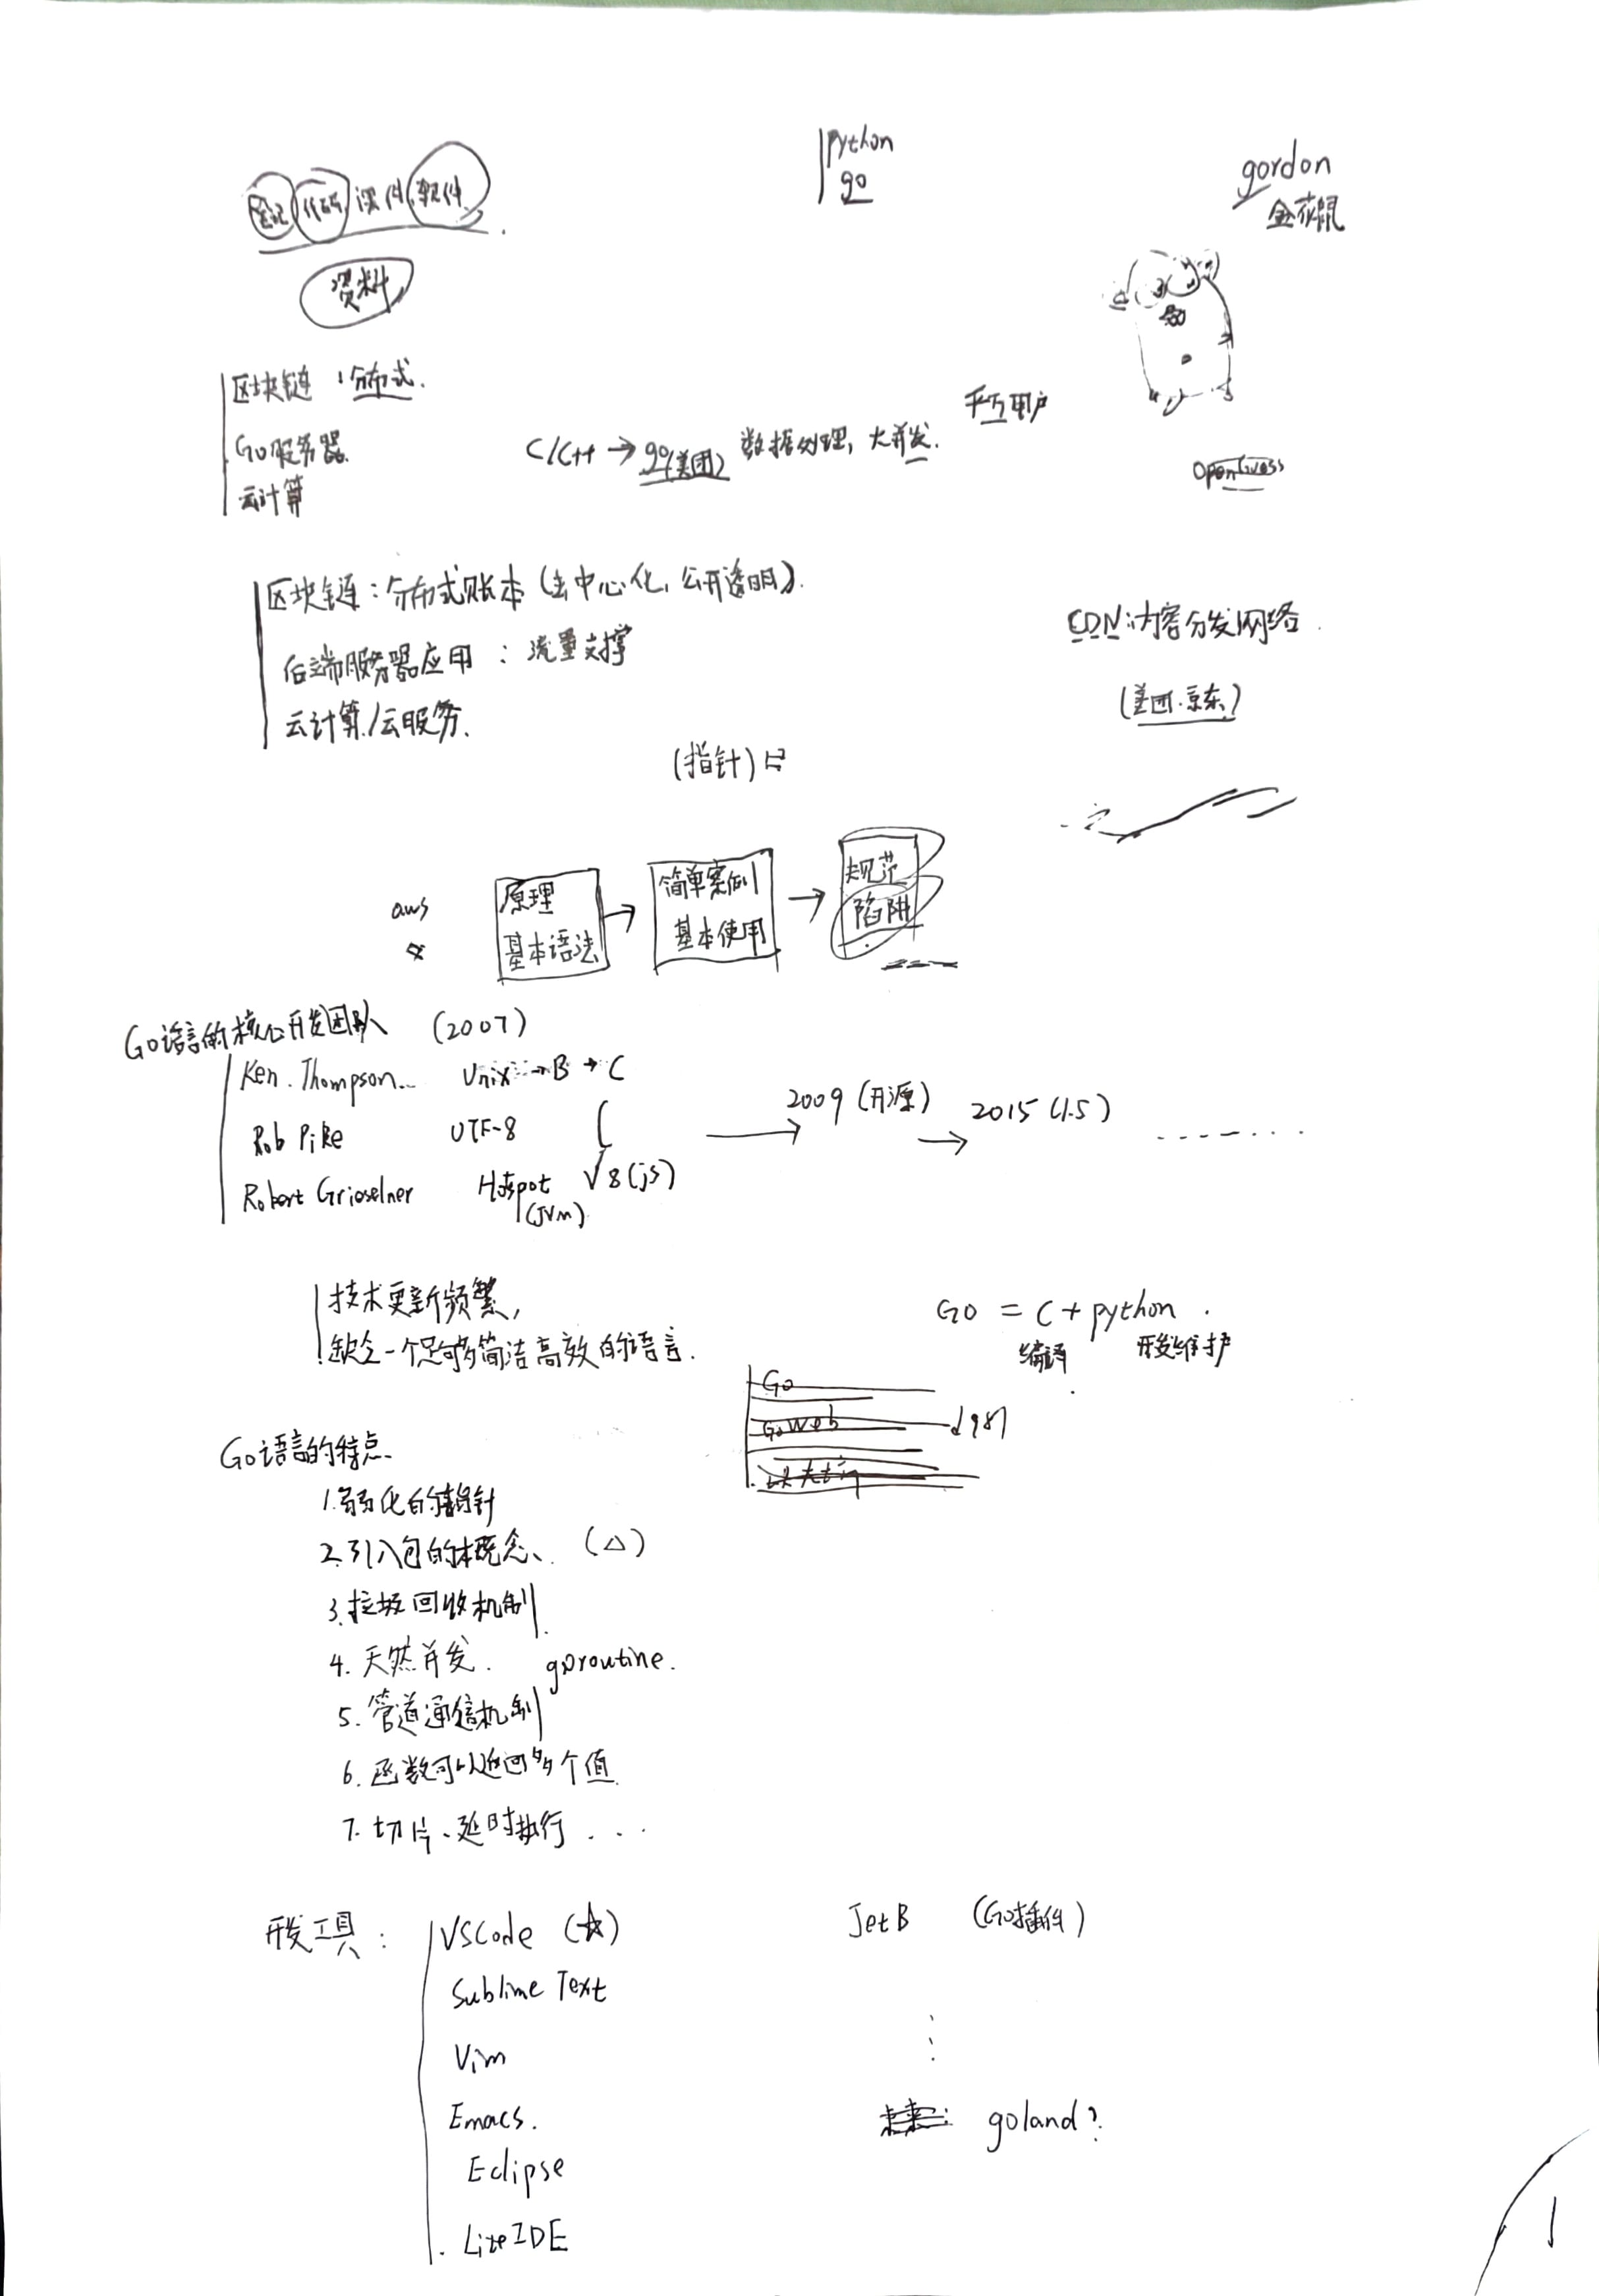 python
go
gordon
金花鼠
笔记 代码 课件 软件
资料
区块链：分布式.
Go服务器
云计算
C/C++ → go(美团) 数据处理, 大并发.
千万用户
区块链：分布式账本 (去中心化, 公开透明).
后端服务器应用：流量支撑
云计算/云服务.
CDN:内容分发网络.
(美团.京东)
(指针)
aws
原理
基本语法
→
简单案例
基本使用
→
规范
陷阱
Go语言的核心开发团队 (2007)
Ken. Thompson... Unix → B → C
Rob Pike UTF-8
Robert Grieselner Hotspot V8(js)
(JVM)
→ 2009 (开源) → 2015 (1.5) ........
技术更新频繁,
缺乏一个足够简洁高效的语言.
GO = C + python.
编译 开发维护
Go
Go Web
Go语言的特点.
1.弱化的指针
2.引入包的概念、 (△)
3.垃圾回收机制.
4. 天然并发. goroutine.
5. 管道通信机制
6. 函数可以返回多个值
7. 切片、延时执行...
开发工具： VSCode (☆)
Sublime Text
Vim
Emacs.
Eclipse
LiteIDE
JetB (Go插件)
goland?
1